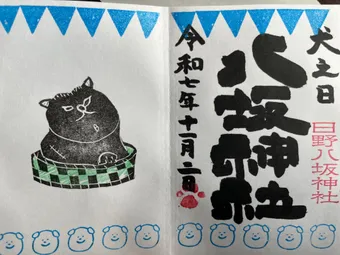 犬之日
八坂神社
日野八坂神社
令和七年十一月二日